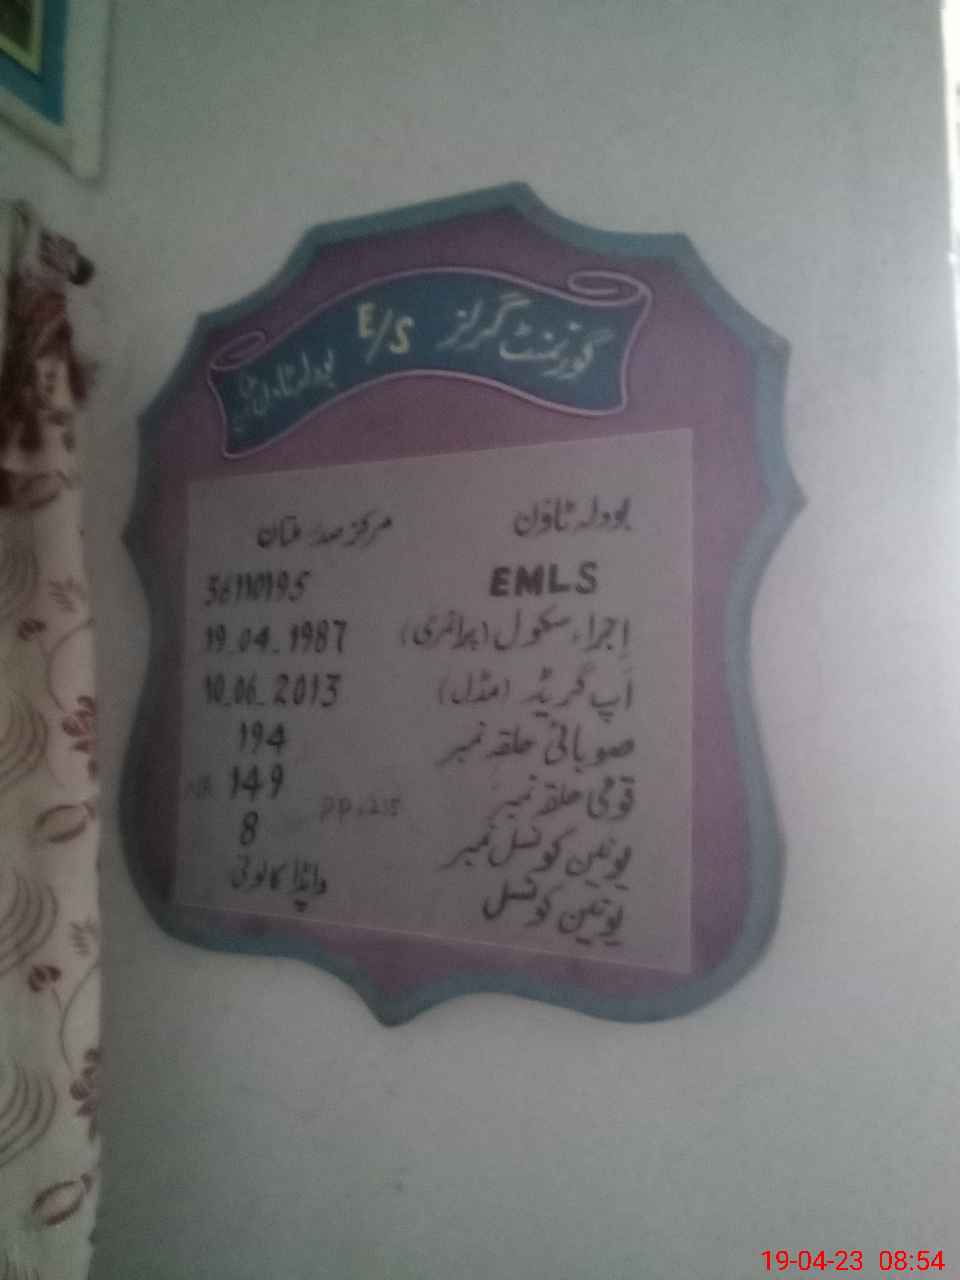 گورنمنٹ گرلز E/S بودلہ ٹاؤن
بودلہ ٹاؤن مرکز صدر ملتان
EMLS 36110195
اجراء سکول (پرائمری) 19.04.1987
اَپ گریڈ (مڈل) 10.06.2013
صوبائی حلقہ نمبر 194
قومی حلقہ نمبر 149
PP-215
یونین کونسل نمبر 8
یونین کونسل واپڈا کالونی
19-04-23 08:54